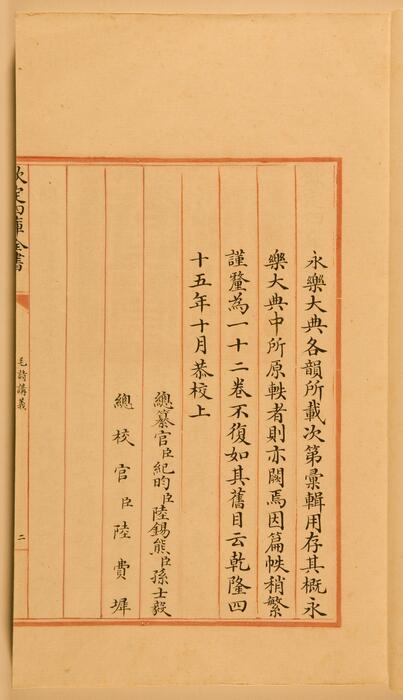 永樂大典各韻所載次第彙輯用存其概永
樂大典中所原軼者則亦闕焉因篇帙稍繁
謹釐為一十二卷不復如其舊目云乾隆四
十五年十月恭校上
總纂官臣紀昀臣陸錫熊臣孫士毅
總校官臣陸費墀
欽定四庫全書
毛詩講義
二